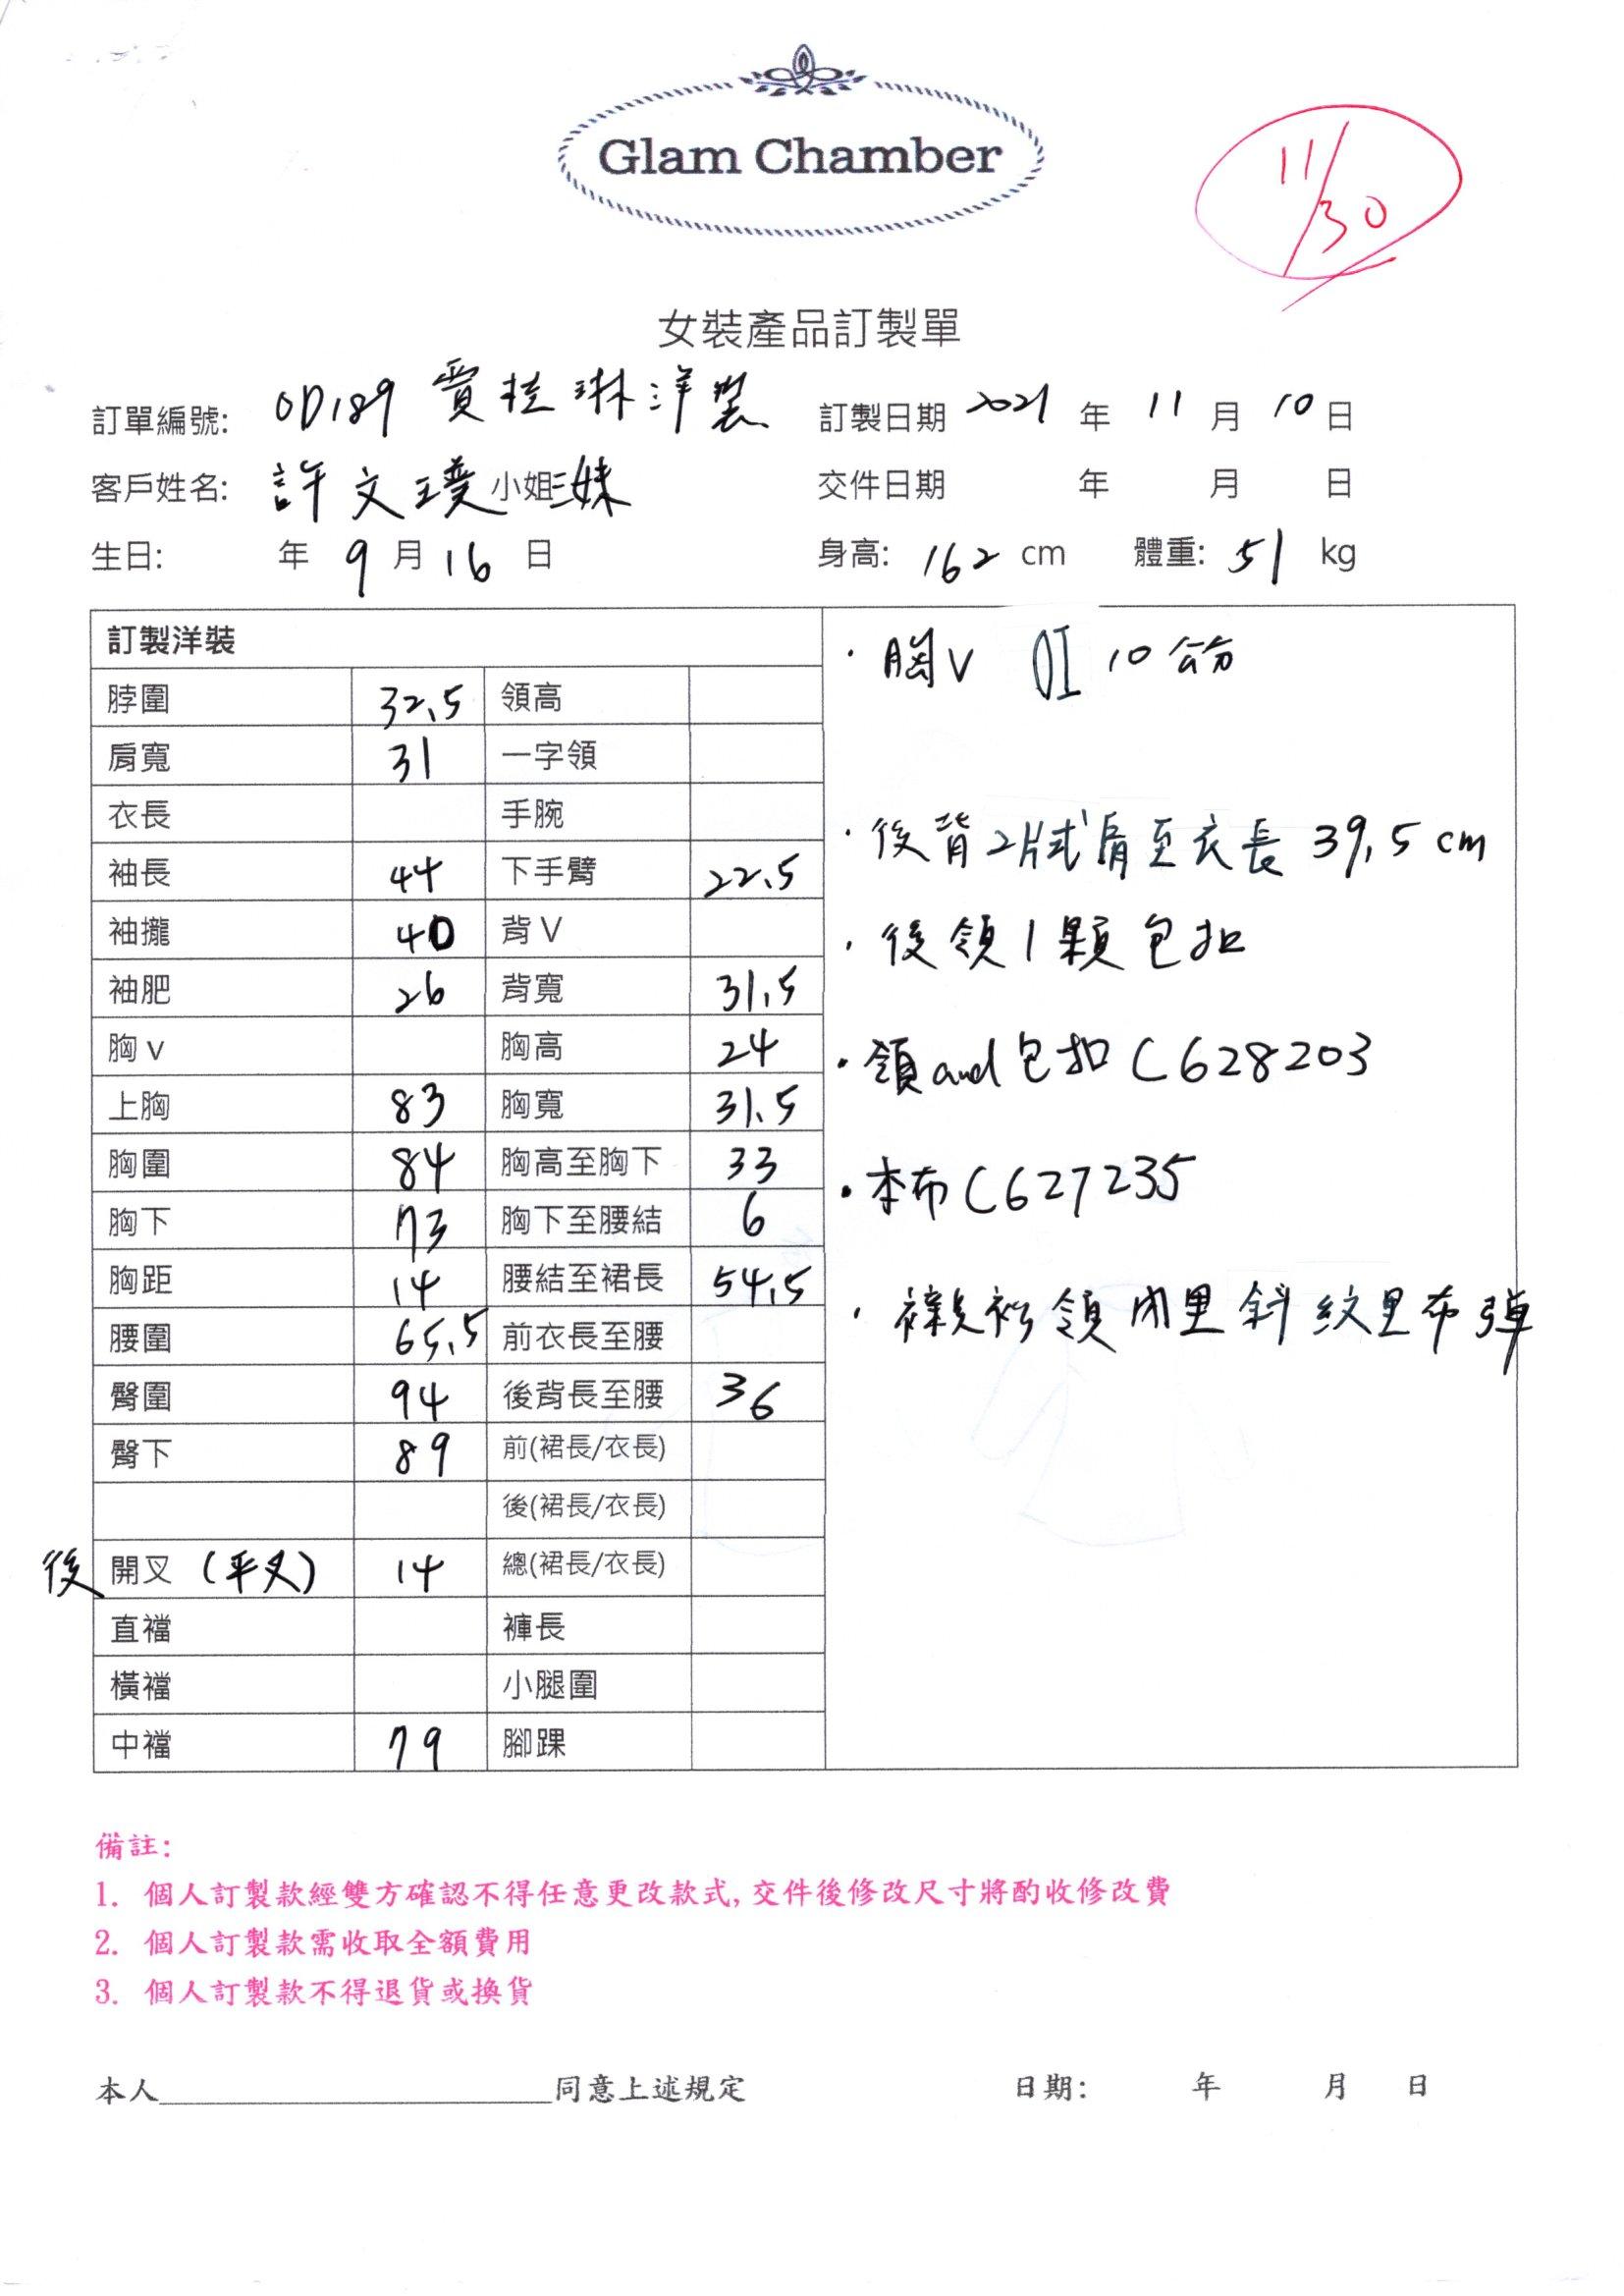 Glam Chamber
11/30
女裝產品訂製單
訂單編號: OD189 賈桂琳洋裝 訂製日期 2021 年 11 月 10 日
客戶姓名: 許文璞小姐三妹 交件日期 年 月 日
生日: 年 9 月 16 日 身高: 162 cm 體重: 51 kg
訂製洋裝
脖圍 32.5 領高
肩寬 31 一字領
衣長 手腕
袖長 44 下手臂 22.5
袖攏 40 背V
袖肥 26 背寬 31.5
胸v 胸高 24
上胸 83 胸寬 31.5
胸圍 84 胸高至胸下 33
胸下 73 胸下至腰結 6
胸距 14 腰結至裙長 54.5
腰圍 65.5 前衣長至腰
臀圍 94 後背長至腰 36
臀下 89 前(裙長/衣長)
後(裙長/衣長)
後 開叉 (平叉) 14 總(裙長/衣長)
直襠 褲長
橫襠 小腿圍
中襠 79 腳踝
· 胸V 10公分
· 後背2片式肩至衣長 39.5 cm
· 後領1顆包扣
· 領and包扣 C628203
· 本布 C627235
· 領內里斜紋里布彈
備註:
1. 個人訂製款經雙方確認不得任意更改款式, 交件後修改尺寸將酌收修改費
2. 個人訂製款需收取全額費用
3. 個人訂製款不得退貨或換貨
本人 同意上述規定 日期: 年 月 日